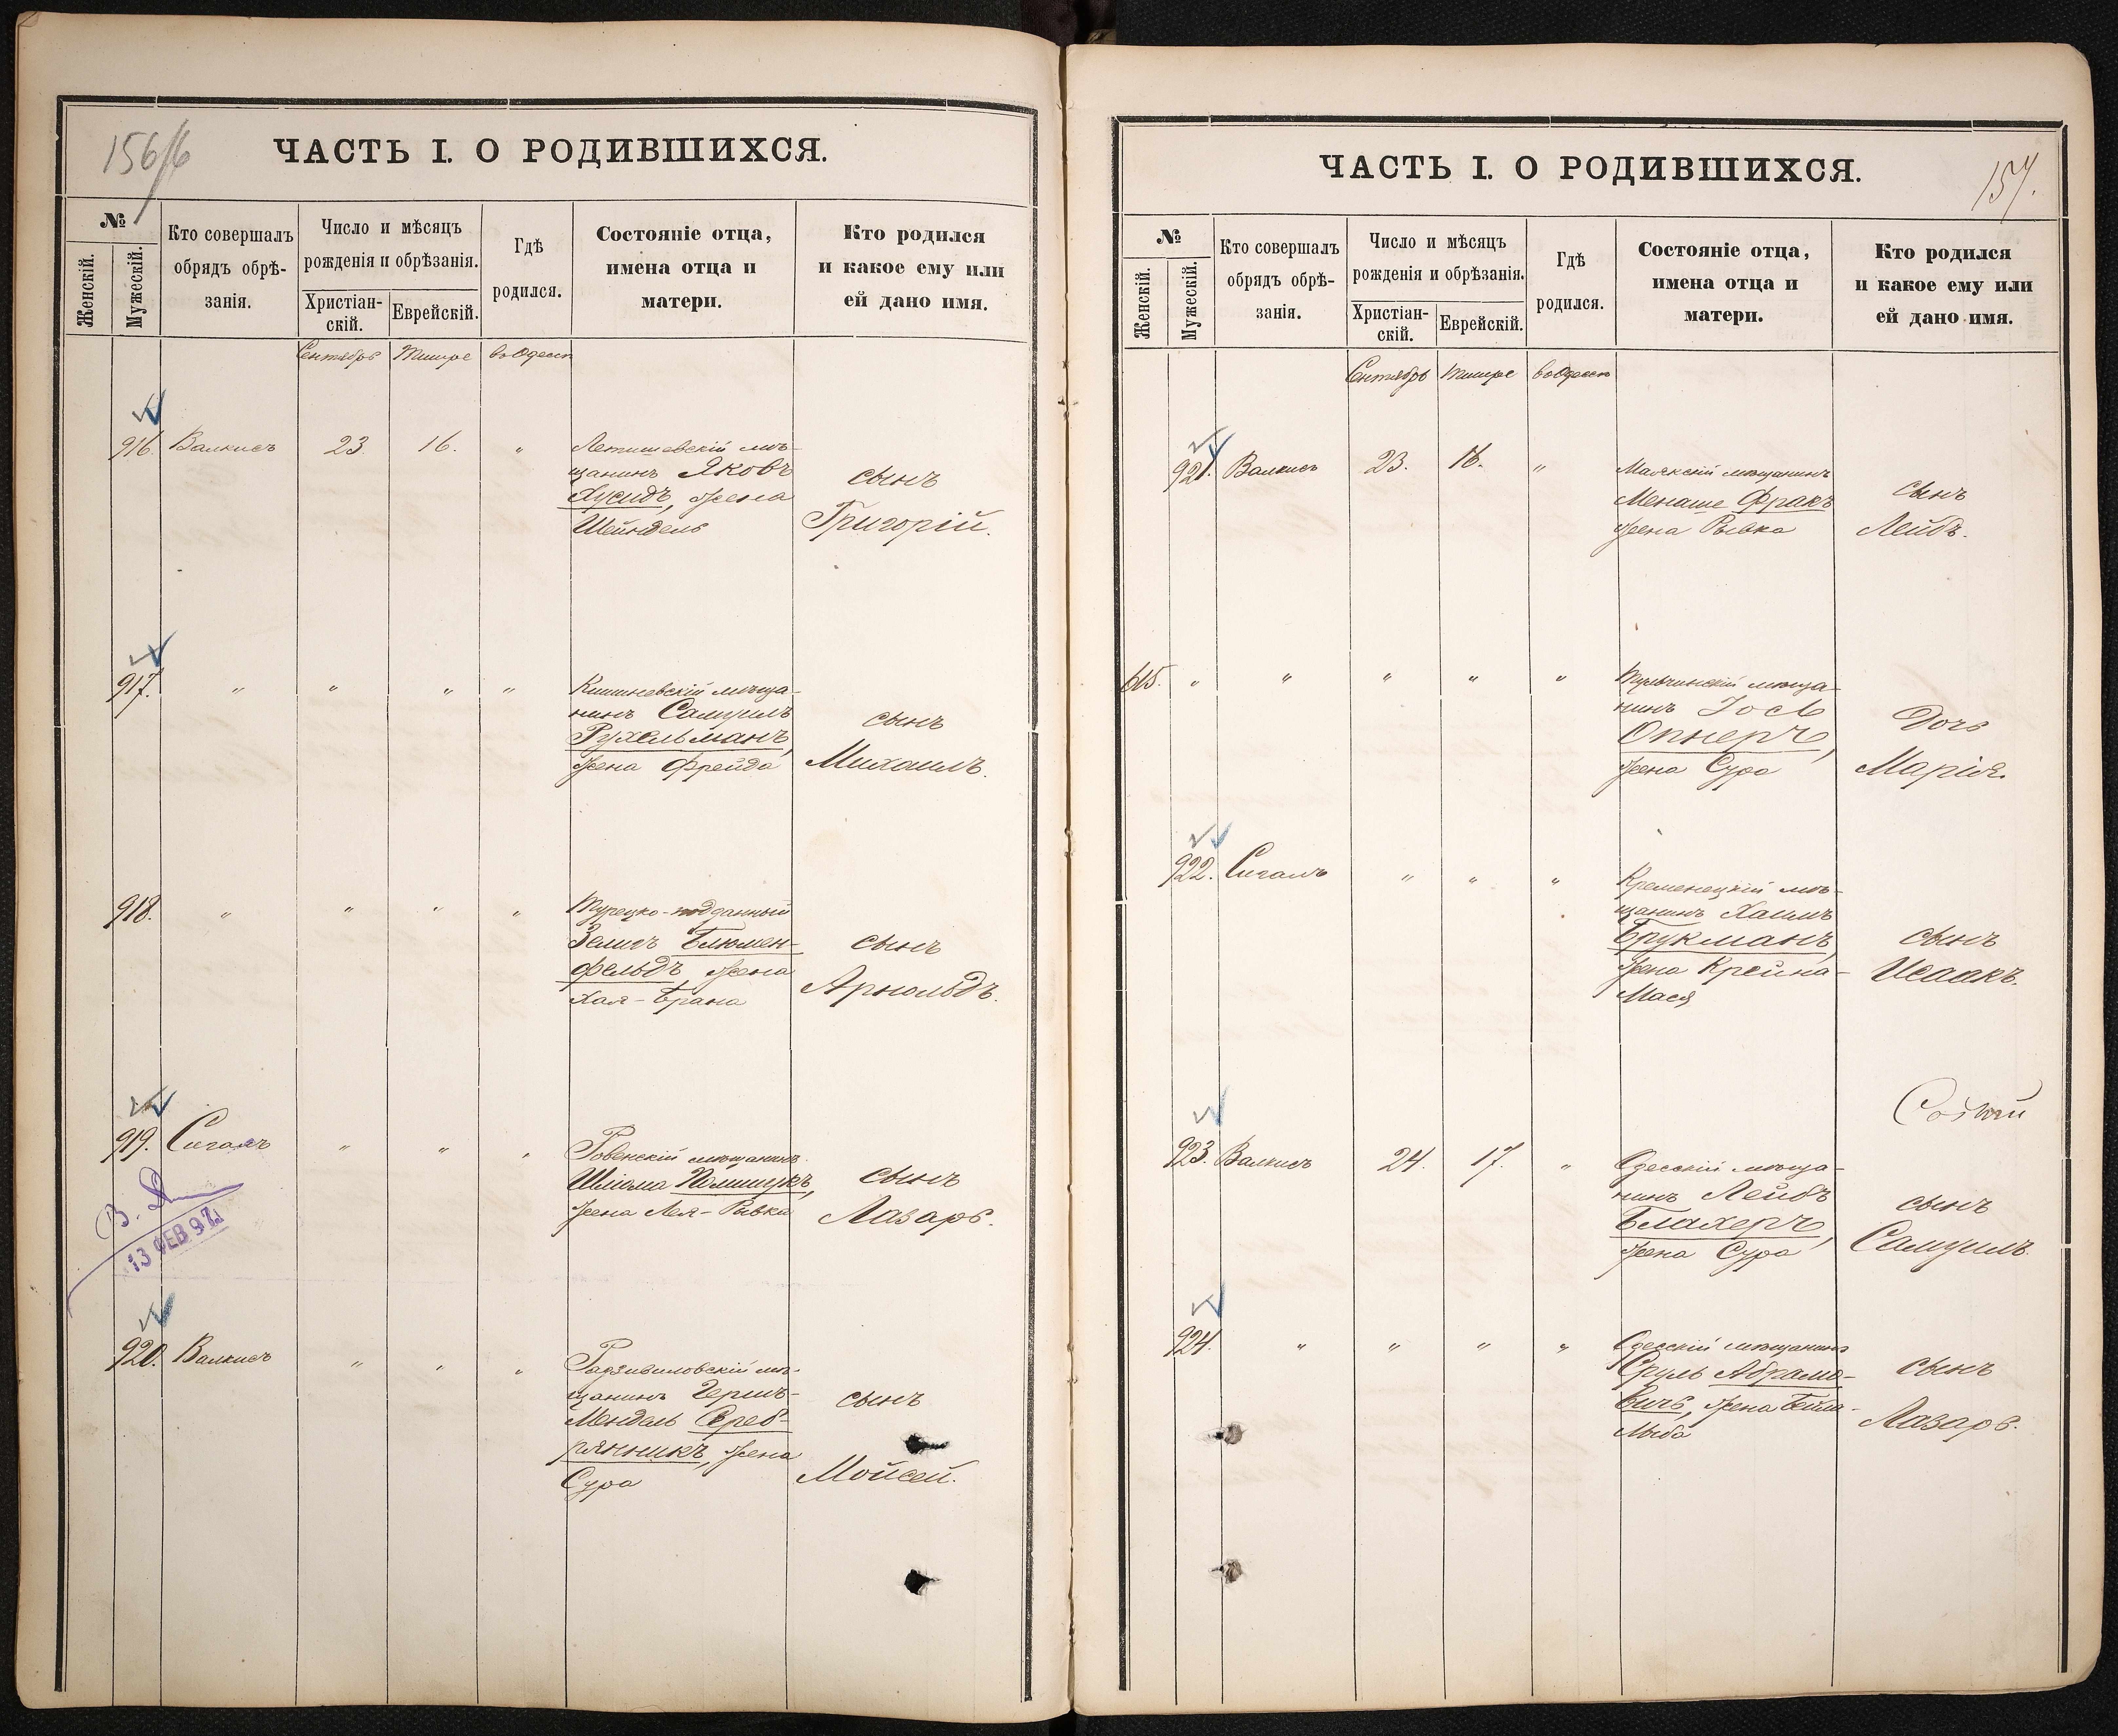 156/6
ЧАСТЬ I. О РОДИВШИХСЯ.
№
Женскій.
Мужескій.
Кто совершалъ
обрядъ обрѣ-
занія.
Число и мѣсяцъ
рожденія и обрѣзанія.
Христіан-
скій.
Еврейскій.
Гдѣ
родился.
Состояніе отца,
имена отца и
матери.
Кто родился
и какое ему или
ей дано имя.
Сентябрь Тишре въ Одессѣ
916. Валкисъ 23. 16. "
Летичевскій мѣ-
щанинъ Яковъ
Хусидъ, жена
Шейндель
сынъ
Григорій.
917. " " " "
Кишиневскій мѣща-
нинъ Самуилъ
Рухельманъ,
жена Фрейда
сынъ
Михаилъ.
918. " " " "
Турецко-подданный
Зелигъ Блюмен-
фельдъ, жена
Хая-Брана
сынъ
Арнольдъ.
919. Сигалъ " " "
Ровенскій мѣщанинъ
Шлiома Полищукъ,
жена Лея-Ривка
сынъ
Лазарь.
13 ФЕВ 97
920. Валкисъ " " "
Радзивиловскій мѣ-
щанинъ Гершъ-
Мендель Среб-
рянникъ, жена
Сура
сынъ
Мойсей.
157.
ЧАСТЬ I. О РОДИВШИХСЯ.
№
Женскій.
Мужескій.
Кто совершалъ
обрядъ обрѣ-
занія.
Число и мѣсяцъ
рожденія и обрѣзанія.
Христіан-
скій.
Еврейскій.
Гдѣ
родился.
Состояніе отца,
имена отца и
матери.
Кто родился
и какое ему или
ей дано имя.
Сентябрь Тишре въ Одессѣ
921. Валкисъ 23. 16. "
Маякскій мѣщанинъ
Менаше Фракъ
жена Рывка
сынъ
Лейбъ.
615. " " " " "
Тульчинскій мѣща-
нинъ Іось
Опнеръ,
жена Сура
Дочь
Марія.
922. Сигалъ " " "
Кременецкій мѣ-
щанинъ Хаимъ
Брукманъ,
жена Крейна-
Мася
сынъ
Исаакъ.
923. Валкисъ 24. 17. "
Одесскій мѣща-
нинъ Лейбъ
Блахеръ,
жена Сура
сынъ
Самуилъ.
924. " " " "
Одесскій мѣщанинъ
Сруль Абрамо-
вичъ, жена Бейла-
сынъ
Лазарь.